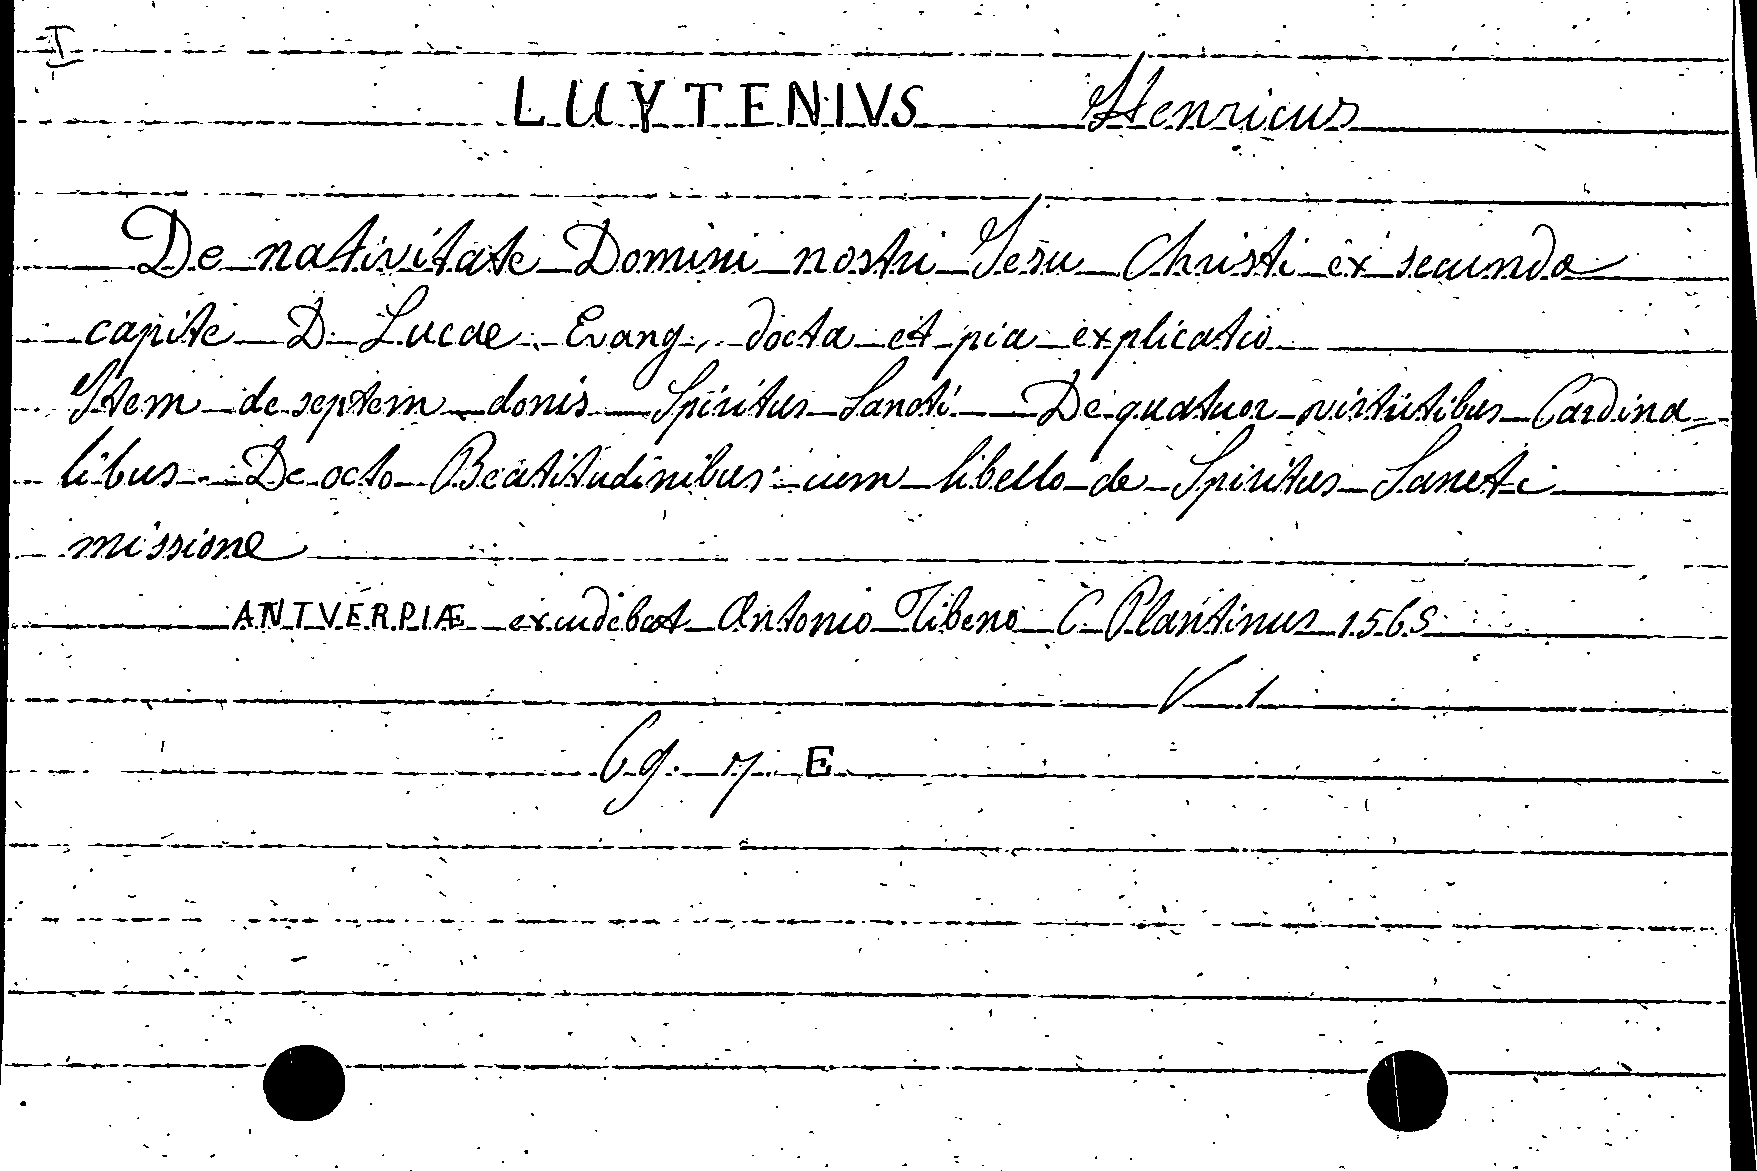 I
LUYTENIVS Henricus
De nativitate Domini nostri Jesu Christi ex secundo
capite D. Lucae Evang., docta et pia explicatio
Item de septem donis Spiritus Sancti De quatuor virtutibus Cardina=
libus De octo Beatitudinibus cum libello de Spiritus Sancti
missione
ANTVERPIÆ excudebat Antonio Tibeno C. Plantinus 1565
V 1
Cg. 7 E